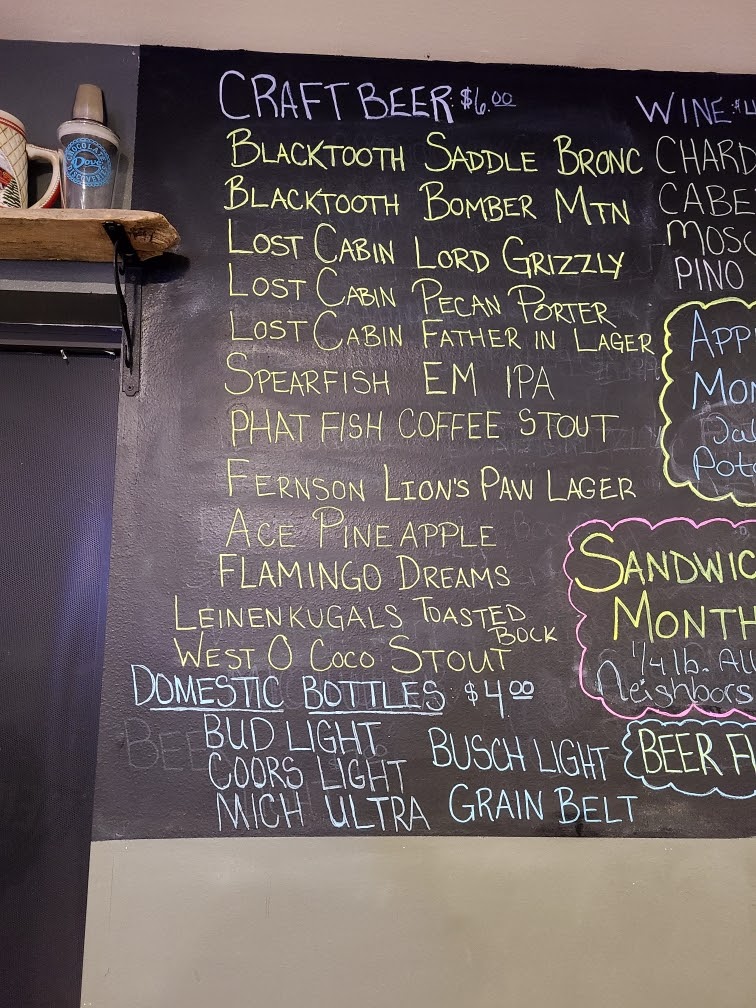 CRAFT BEER: $6.00
BLACKTOOTH SADDLE BRONC
BLACKTOOTH BOMBER MTN
LOST CABIN LORD GRIZZLY
LOST CABIN PECAN PORTER
LOST CABIN FATHER IN LAGER
SPEARFISH EM IPA
PHAT FISH COFFEE STOUT
FERNSON LION'S PAW LAGER
ACE PINEAPPLE
FLAMINGO DREAMS
LEINENKUGALS TOASTED
BOCK
WEST O COCO STOUT
DOMESTIC BOTTLES $4.00
BUD LIGHT
COORS LIGHT
MICH ULTRA
BUSCH LIGHT
GRAIN BELT
WINE:
CHARD
CABE
MOSC
PINO
APP
MON
Pot
SANDWIC
MONTH
1/4 lb. All
Neighbors
BEER F
CHOCOLATE
Dove
DISCOVERIES